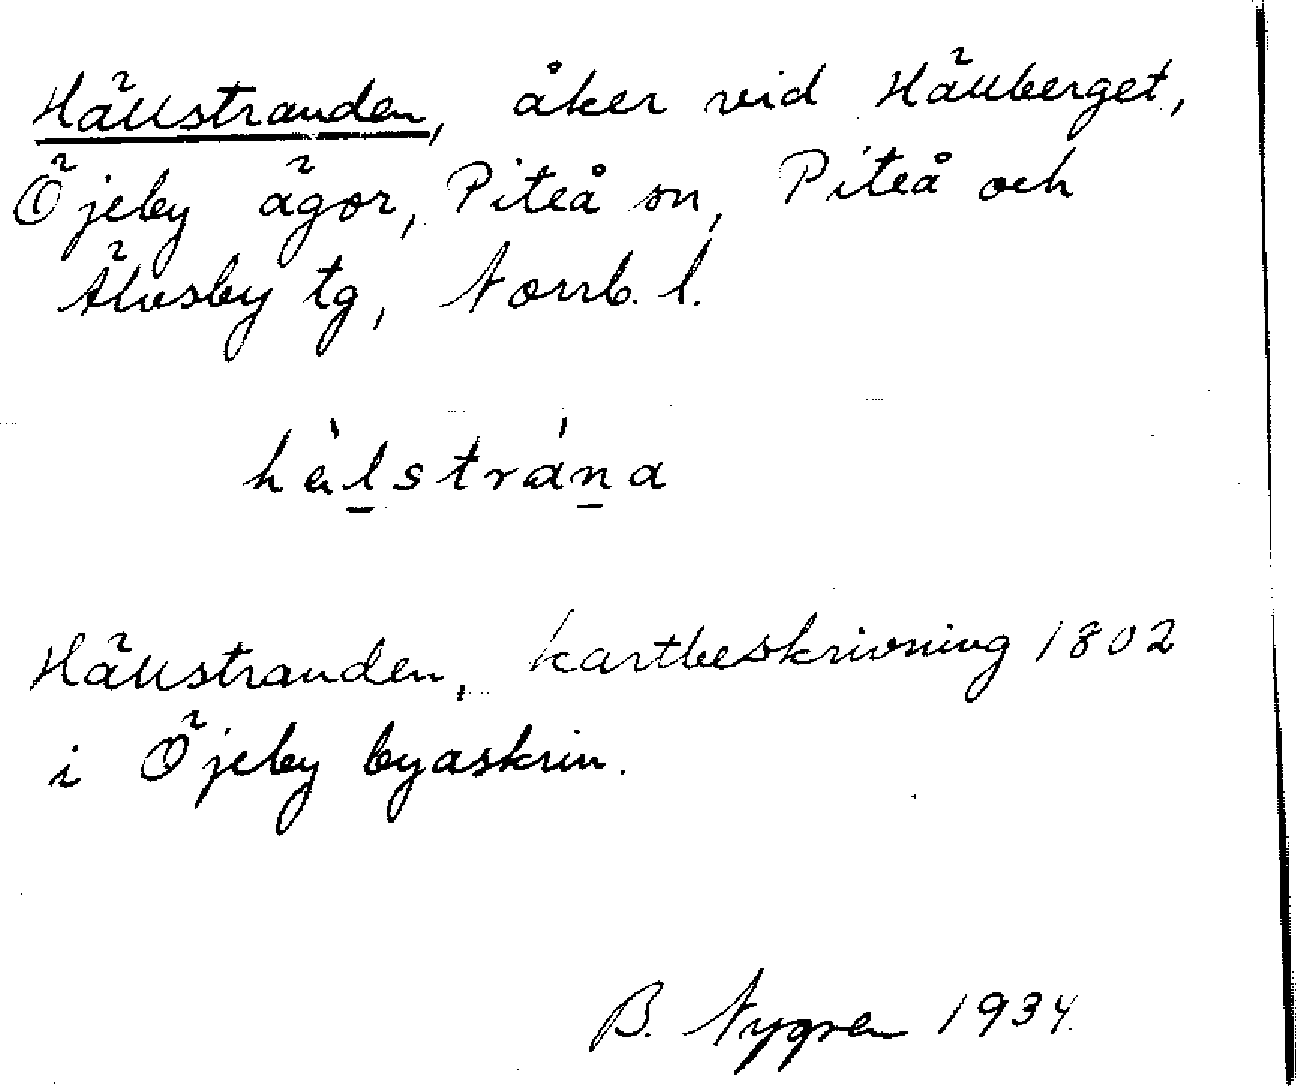 Hällstranden, åker vid Hällberget,
Öjeby ägor, Piteå sn, Piteå och
Älvsby tg, Norrb. l.
hàl̲strán̲a
Hällstranden, kartbeskrivning 1802
i Öjeby byaskrin.
B. Nygren 1934.